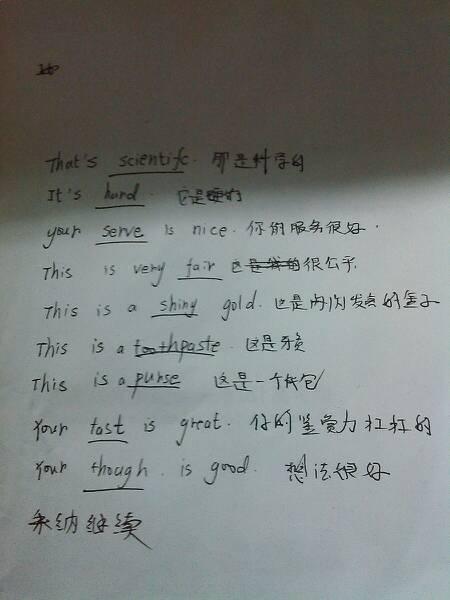 That's scientifc. 那是科学的
It's hard. 它是硬的
your serve is nice. 你的服务很好.
This is very fair 这很公平.
This is a shiny gold. 这是闪闪发亮的金子
This is a toothpaste. 这是牙膏
This is a purse 这是一个钱包
Your tast is great. 你的鉴赏力杠杠的
Your though. is good. 想法很好
采纳继续